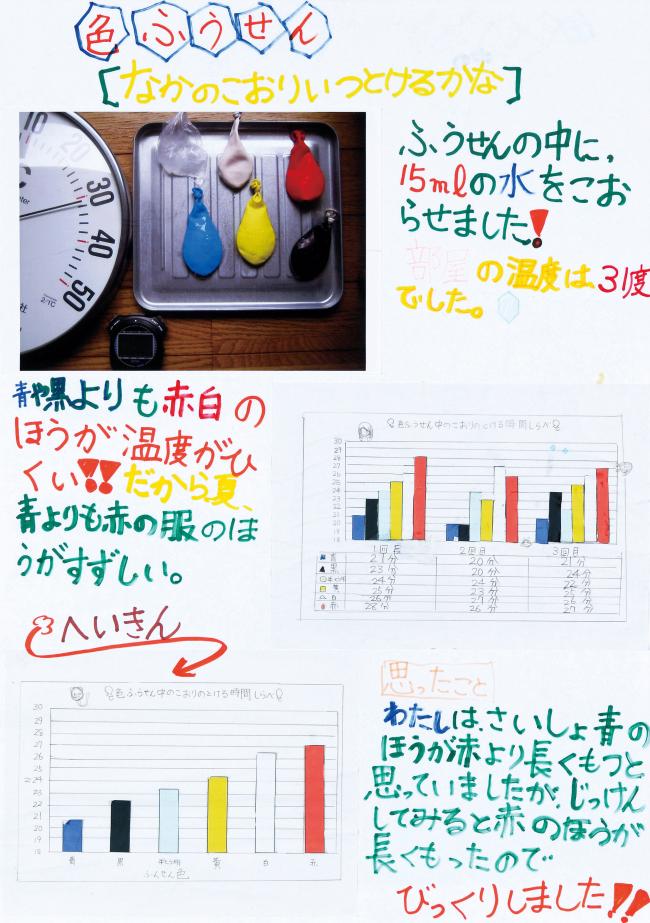 色ふうせん
[なかのこおりいつとけるかな]
ふうせんの中に、
15mlの水をこお
らせました!
部屋の温度は、31度
でした。
10
20
30
40
50
青や黒よりも赤白の
ほうが温度がひ
くい!!だから夏、
青よりも赤の服のほ
うがすずしい。
へいきん
色ふうせん中のこおりのとける時間しらべ
30
29
28
27
26
25
24
23
22
21
20
19
18
1回目 2回目 3回目
青 21分 20分 21分
黒 23分 20分 24分
24分 24分 22分
黄 25分 23分 25分
白 26分 27分
赤 28分 26分 27分
色ふうせん中のこおりのとける時間しらべ
30
29
28
27
26
25
24
23
22
21
20
19
18
青 黒 黄 白 赤
ふうせん色
思ったこと
わたしは、さいしょ青の
ほうが赤より長くもつと
思っていましたが、じっけん
してみると赤のほうが
長くもったので
びっくりしました!!